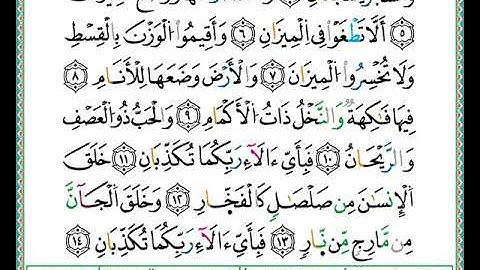 أَلَّا تَطْغَوْا۟ فِى ٱلْمِيزَانِ ٨ وَأَقِيمُوا۟ ٱلْوَزْنَ بِٱلْقِسْطِ
وَلَا تُخْسِرُوا۟ ٱلْمِيزَانَ ٩ وَٱلْأَرْضَ وَضَعَهَا لِلْأَنَامِ
فِيهَا فَٰكِهَةٌ وَٱلنَّخْلُ ذَاتُ ٱلْأَكْمَامِ وَٱلْحَبُّ ذُو ٱلْعَصْفِ
وَٱلرَّيْحَانُ فَبِأَىِّ ءَالَآءِ رَبِّكُمَا تُكَذِّبَانِ خَلَقَ
ٱلْإِنسَٰنَ مِن صَلْصَٰلٍ كَٱلْفَخَّارِ وَخَلَقَ ٱلْجَآنَّ
مِن مَّارِجٍ مِّن نَّارٍ فَبِأَىِّ ءَالَآءِ رَبِّكُمَا تُكَذِّبَانِ